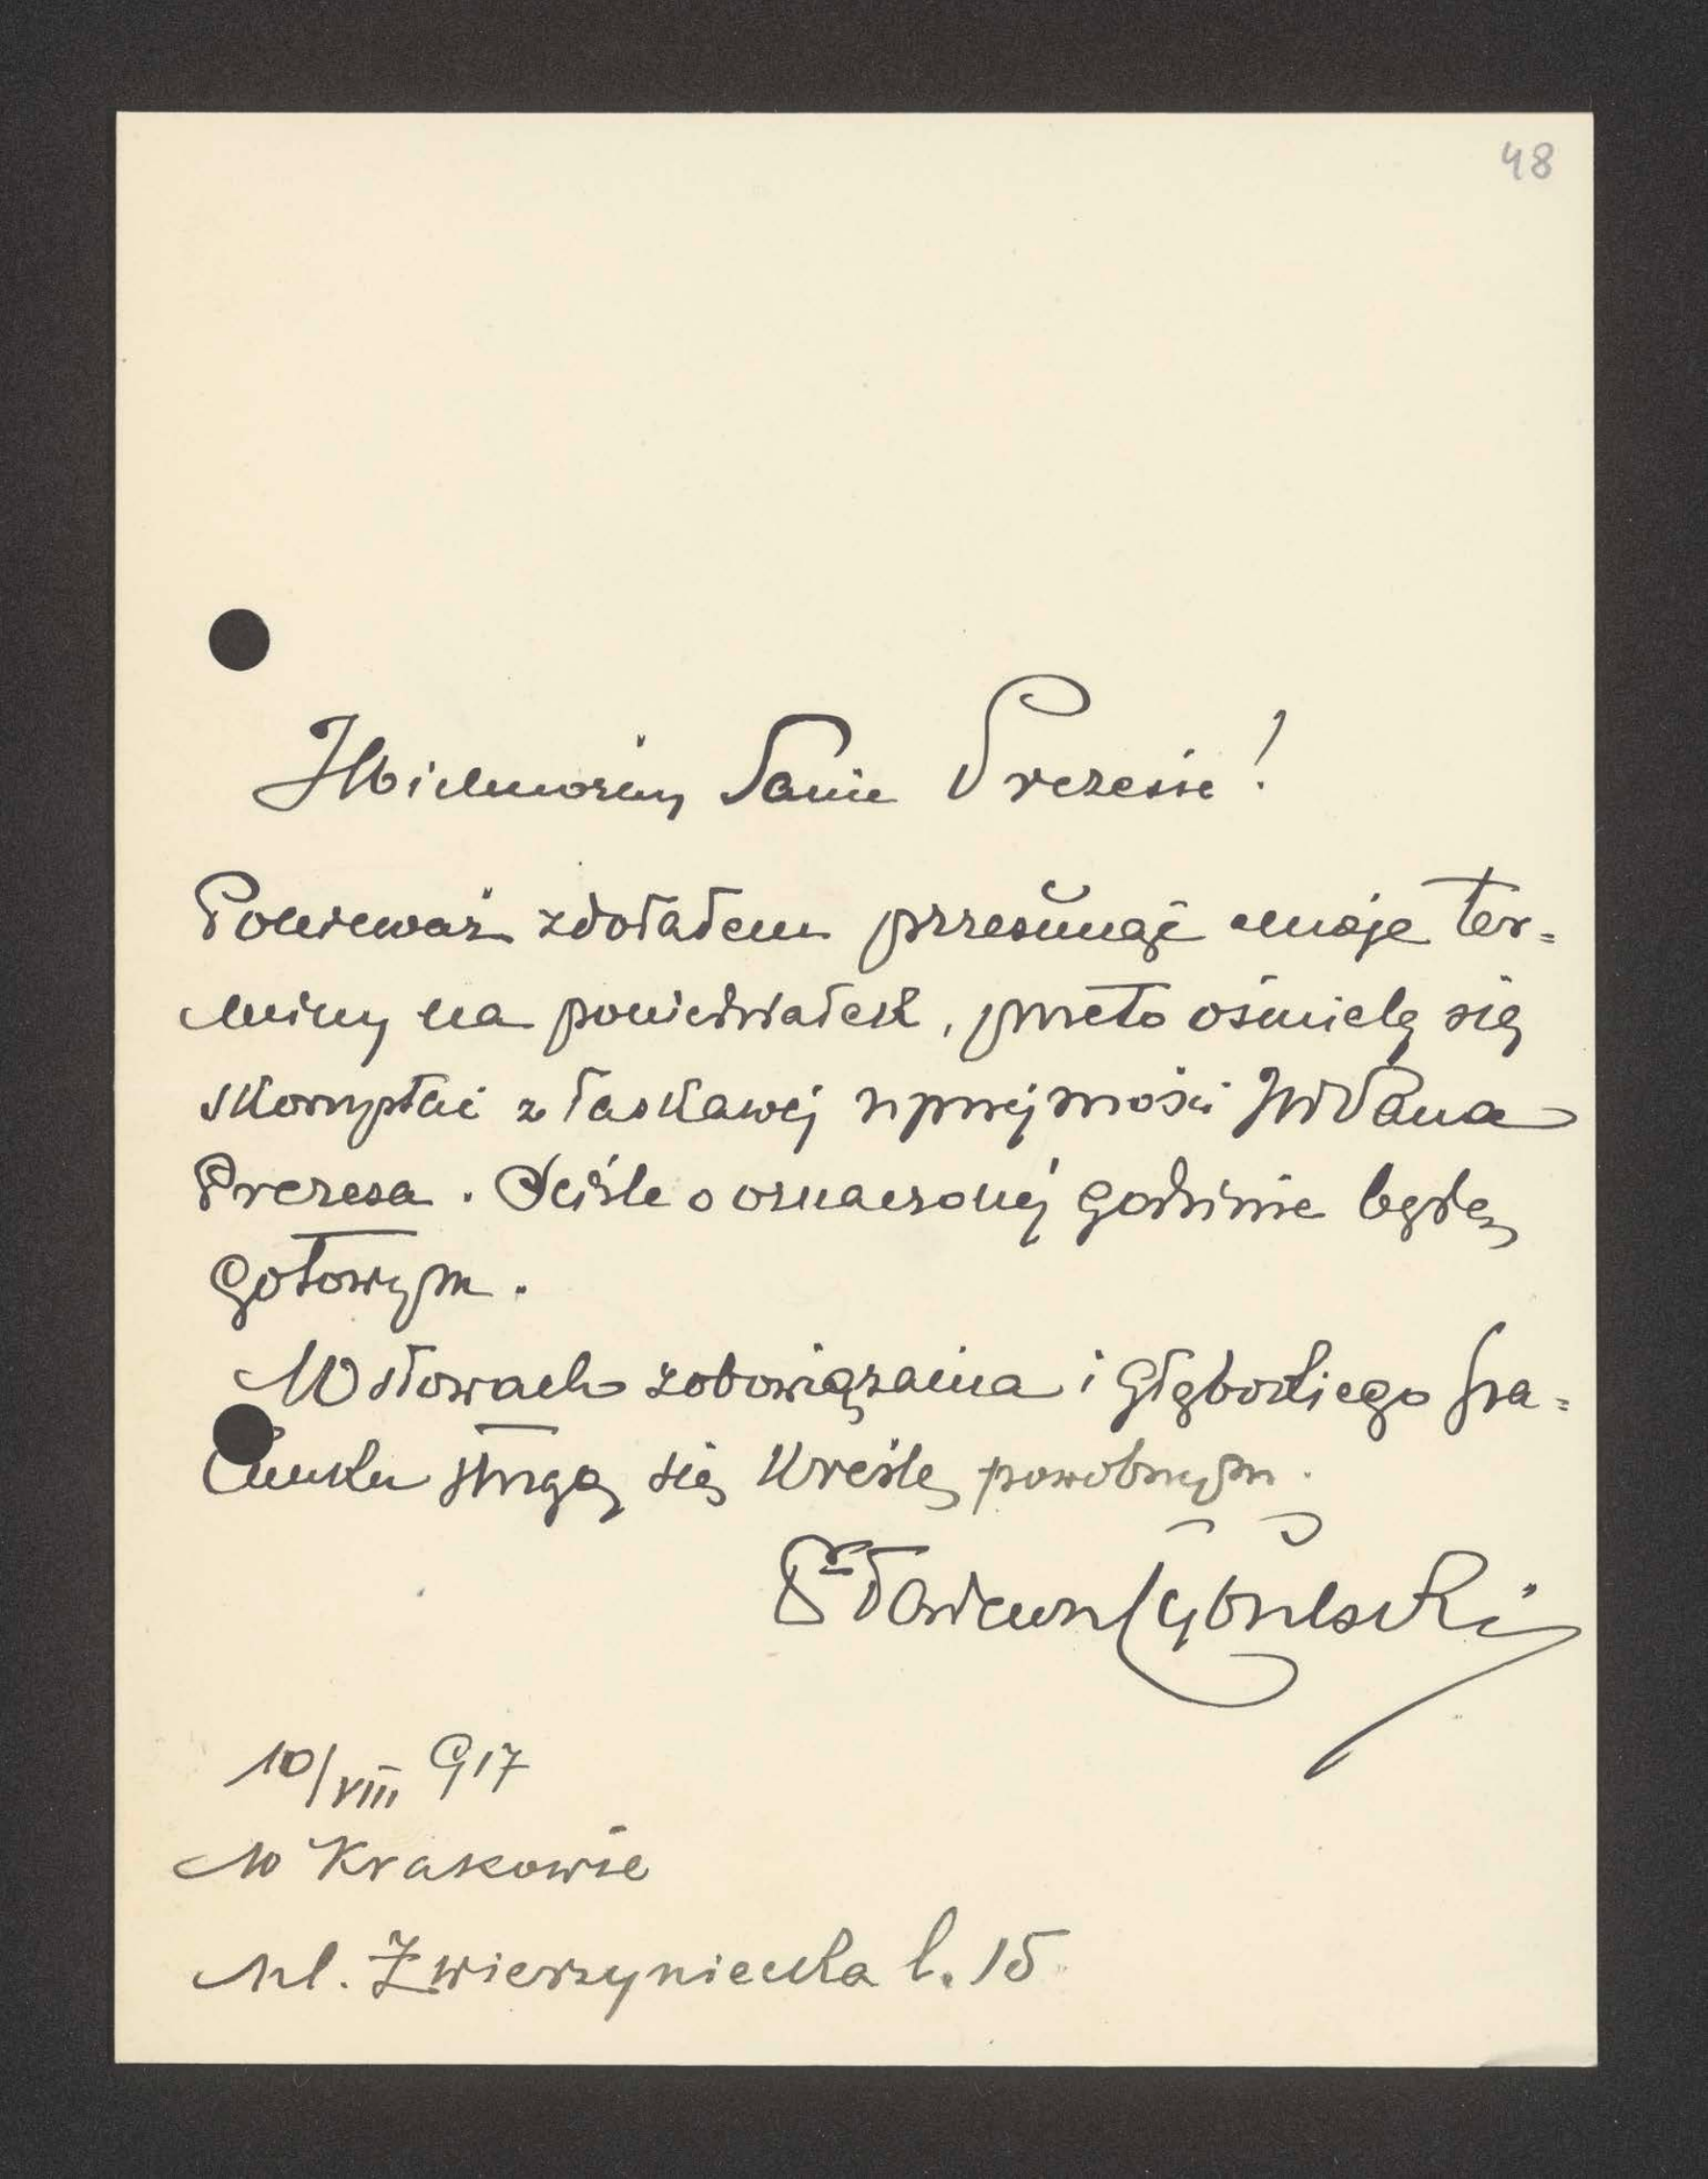 48
JWielmożny Panie Prezesie!
Ponieważ zdołałem przesunąć moje ter=
miny na poniedziałek, przeto ośmielę się
skorzystać z łaskawej uprzejmości JWPana
Prezesa. Ściśle o oznaczonej godzinie będę
gotowym.
W słowach zobowiązania i głębokiego sza=
cunku sługą się kreślę powolnym.
Dr
10/VIII 917
W Krakowie
ul. Zwierzyniecka l. 15